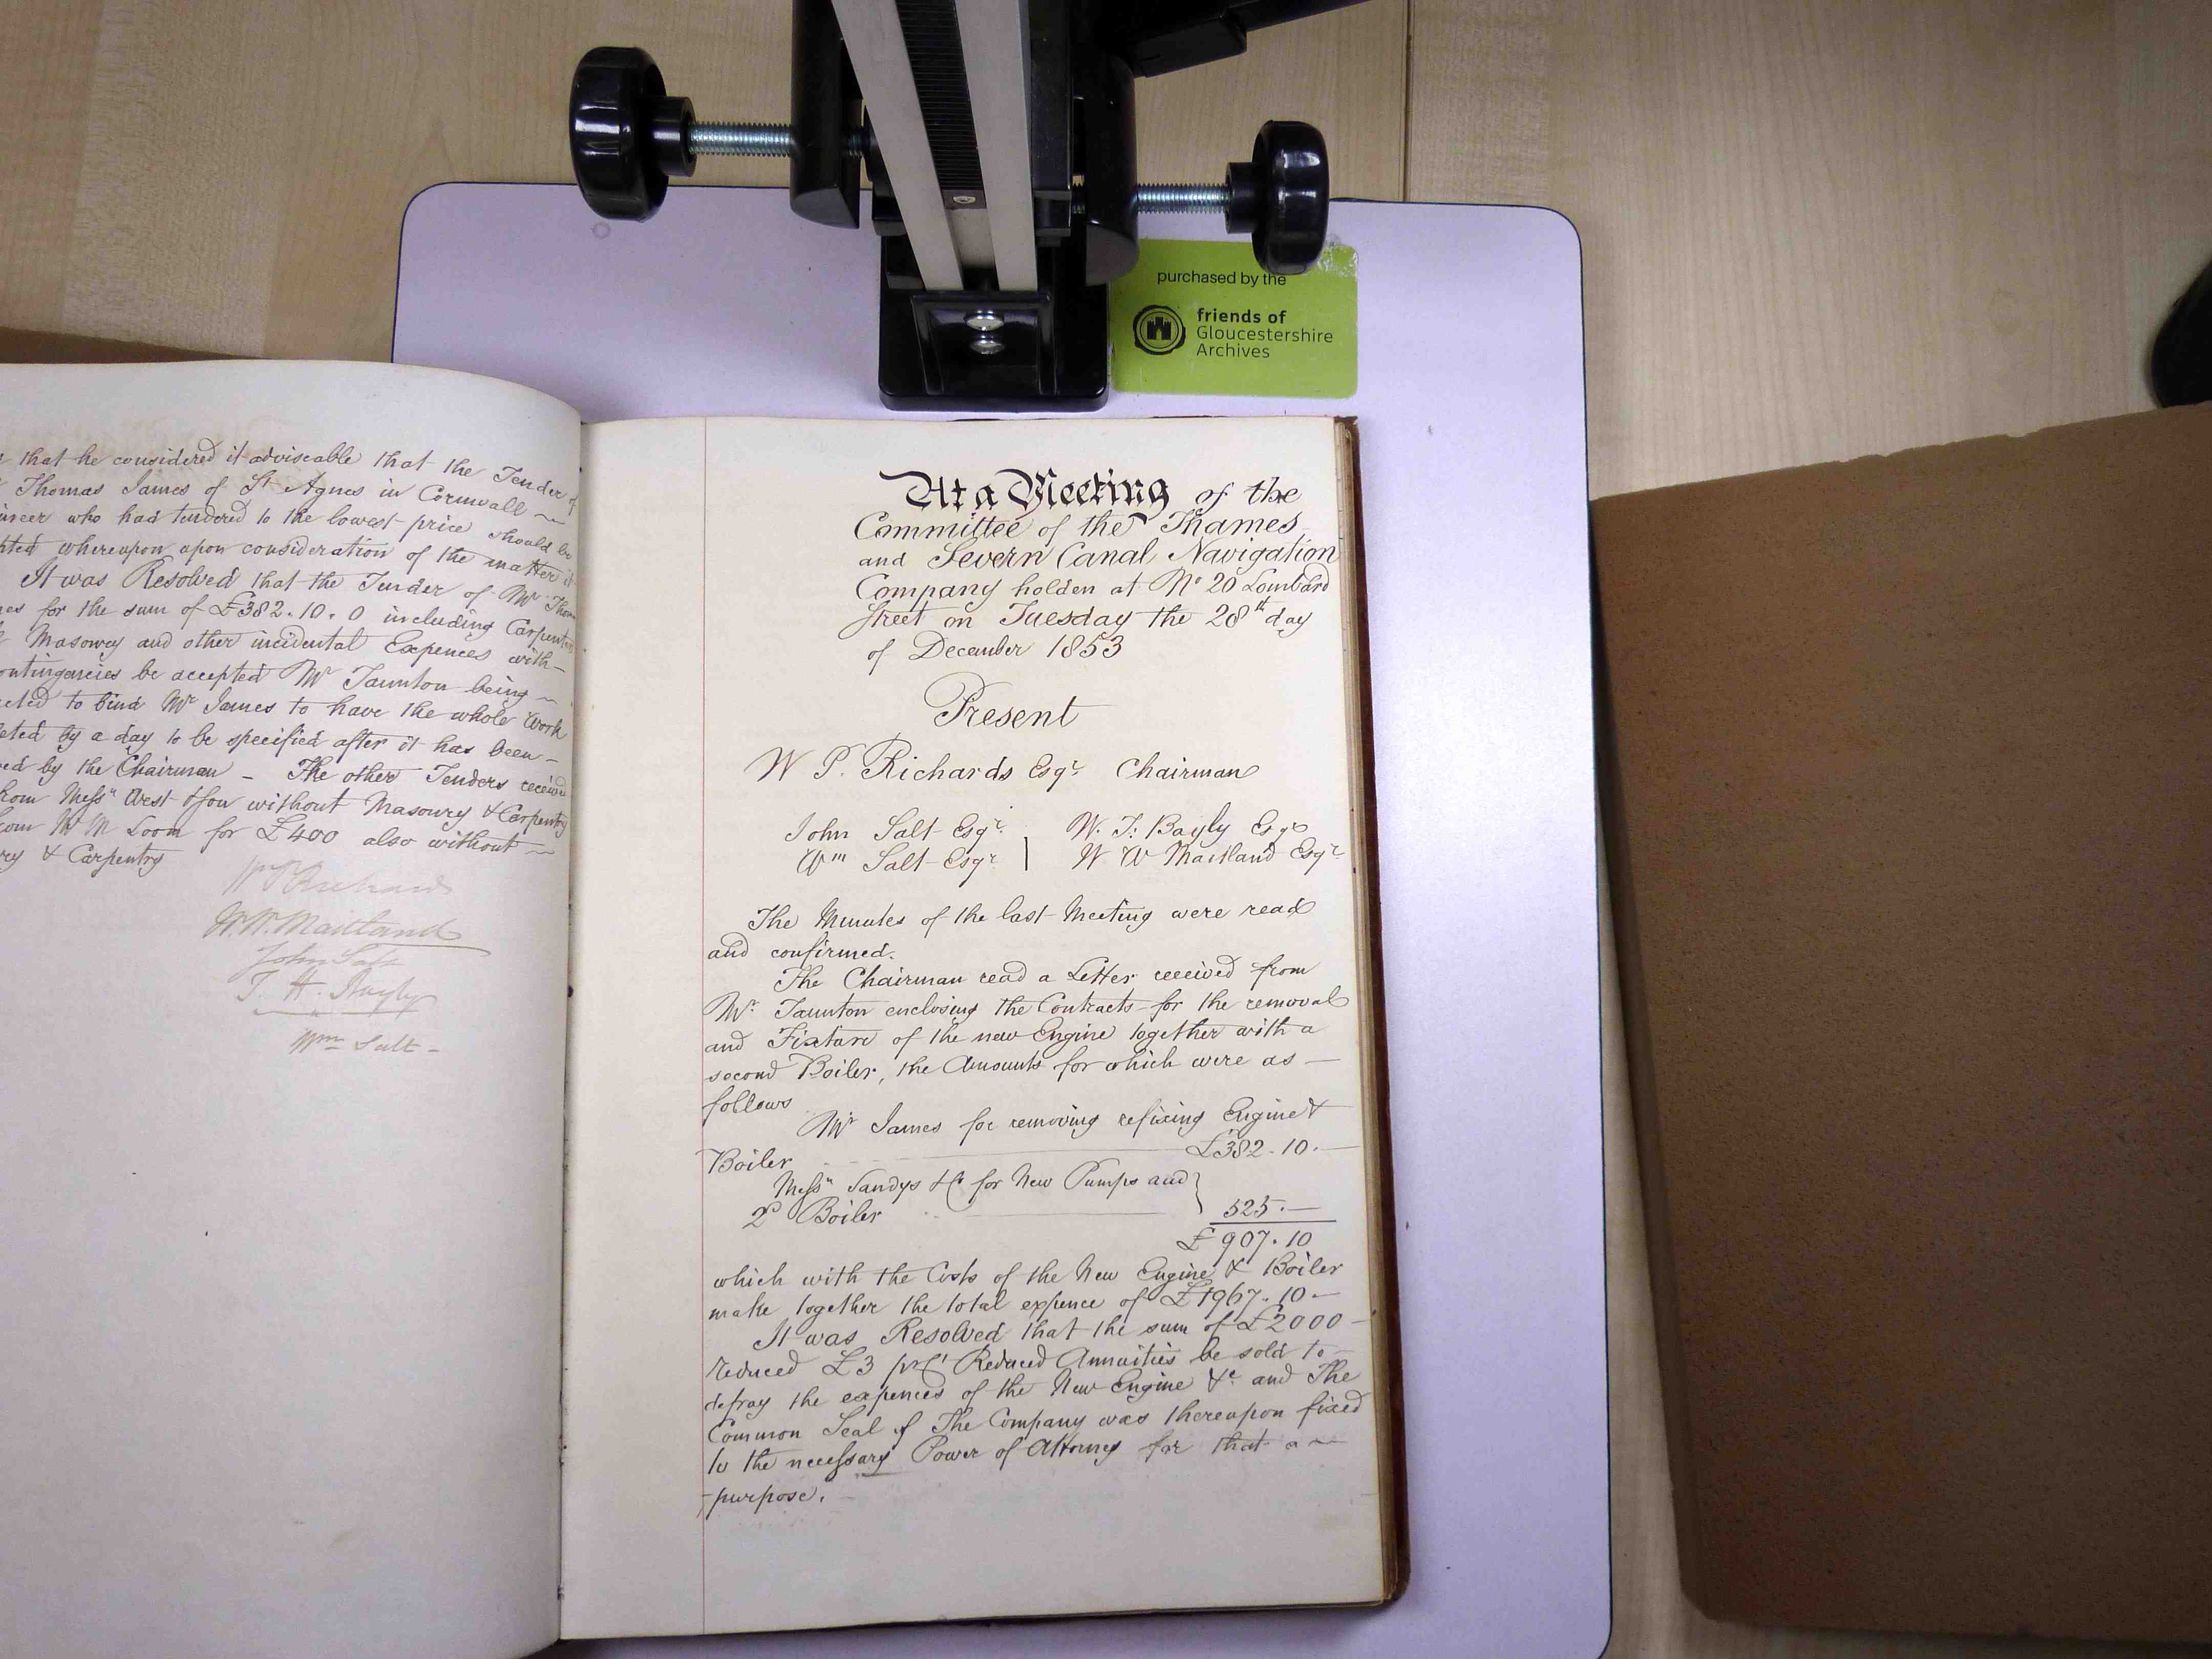 purchased by the
friends of
Gloucestershire
Archives
that he considered it adviseable that the Tender of
Thomas James of St Agnes in Cornwall
who had tendered to the lowest price should be
whereupon upon consideration of the matter it
It was Resolved that the Tender of Mr
for the sum of £382.10.0 including
Masonry and other incidental Expences with
be accepted Mr Taunton being
to bind Mr James to have the whole Work
by a day to be specified after it has been
by the Chairman - The other Tenders
from Messrs West & Son without Masonry & Carpentry
Loom for £400 also without
& Carpentry
W.W. Maitland
John Salt
Wm Salt -
At a Meeting of the
Committee of the Thames
and Severn Canal Navigation
Company holden at No 20 Lombard
Street on Tuesday the 28th day
of December 1853
Present
W P. Richards Esqr. Chairman
John Salt Esqr. W. T: Bayly Esqr
Wm Salt Esqr W W Maitland Esqr
The Minutes of the last Meeting were read
and confirmed.
The Chairman read a Letter received from
Mr. Taunton enclosing the Contracts for the removal
and Fixture of the new Engine together with a
second Boiler, the Amounts for which were as —
follows
Mr James for removing refixing Engine &
Boiler £382.10.—
Messrs Sandys & Co for New Pumps and
2d Boiler 525.—
£907.10
which with the Costs of the New Engine & Boiler
make together the total expence of £1967.10 —
It was Resolved that the sum of £2000 —
reduced £3 pr Ct Reduced Annuities be sold to —
defray the expences of the New Engine &c and The
Common Seal of The Company was thereupon fixed
to the necessary Power of Attorney for that
purpose.